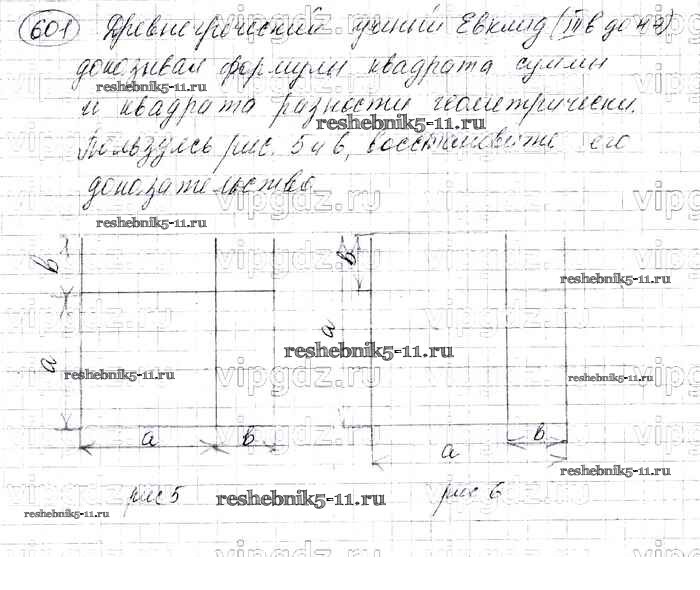 601 Древнегреческий учёный Евклид (III в до н э)
доказывал формулы квадрата суммы
reshebnik5-11.ru
и квадрата разности геометрически.
reshebnik5-11.ru
Пользуясь рис. 5 и 6, восстановите его
доказательство.
reshebnik5-11.ru
vipgdz.ru
в
в
reshebnik5-11.ru
vipgdz.ru
а
а
reshebnik5-11.ru
reshebnik5-11.ru
reshebnik5-11.ru
vipgdz.ru
а
в
в
а
reshebnik5-11.ru
рис 5
reshebnik5-11.ru
рис 6
reshebnik5-11.ru
vipgdz.ru